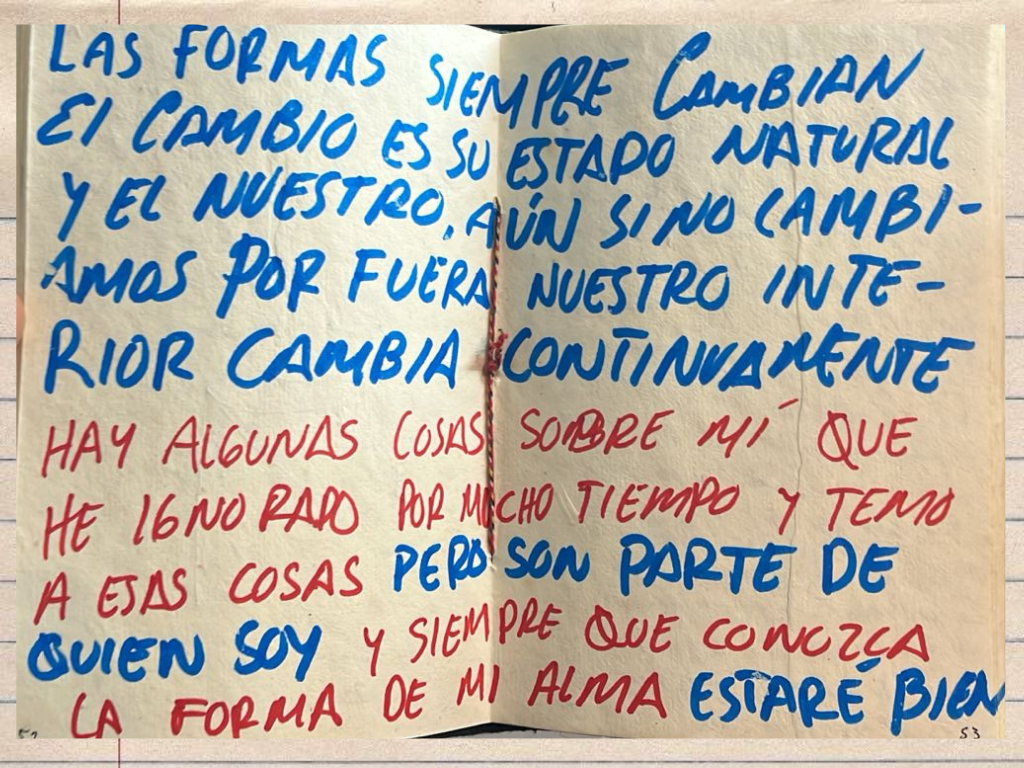 LAS FORMAS SIEMPRE CAMBIAN
El CAMBIO ES SU ESTADO NATURAL
Y EL NUESTRO, AÚN SI NO CAMBI-
AMOS POR FUERA NUESTRO INTE-
RIOR CAMBIA CONTINUAMENTE
HAY ALGUNAS COSAS SOBRE MÍ QUE
HE IGNORADO POR MUCHO TIEMPO Y TEMO
A ESAS COSAS PERO SON PARTE DE
QUIEN SOY Y SIEMPRE QUE CONOZCA
LA FORMA DE MI ALMA ESTARÉ BIEN
52 53